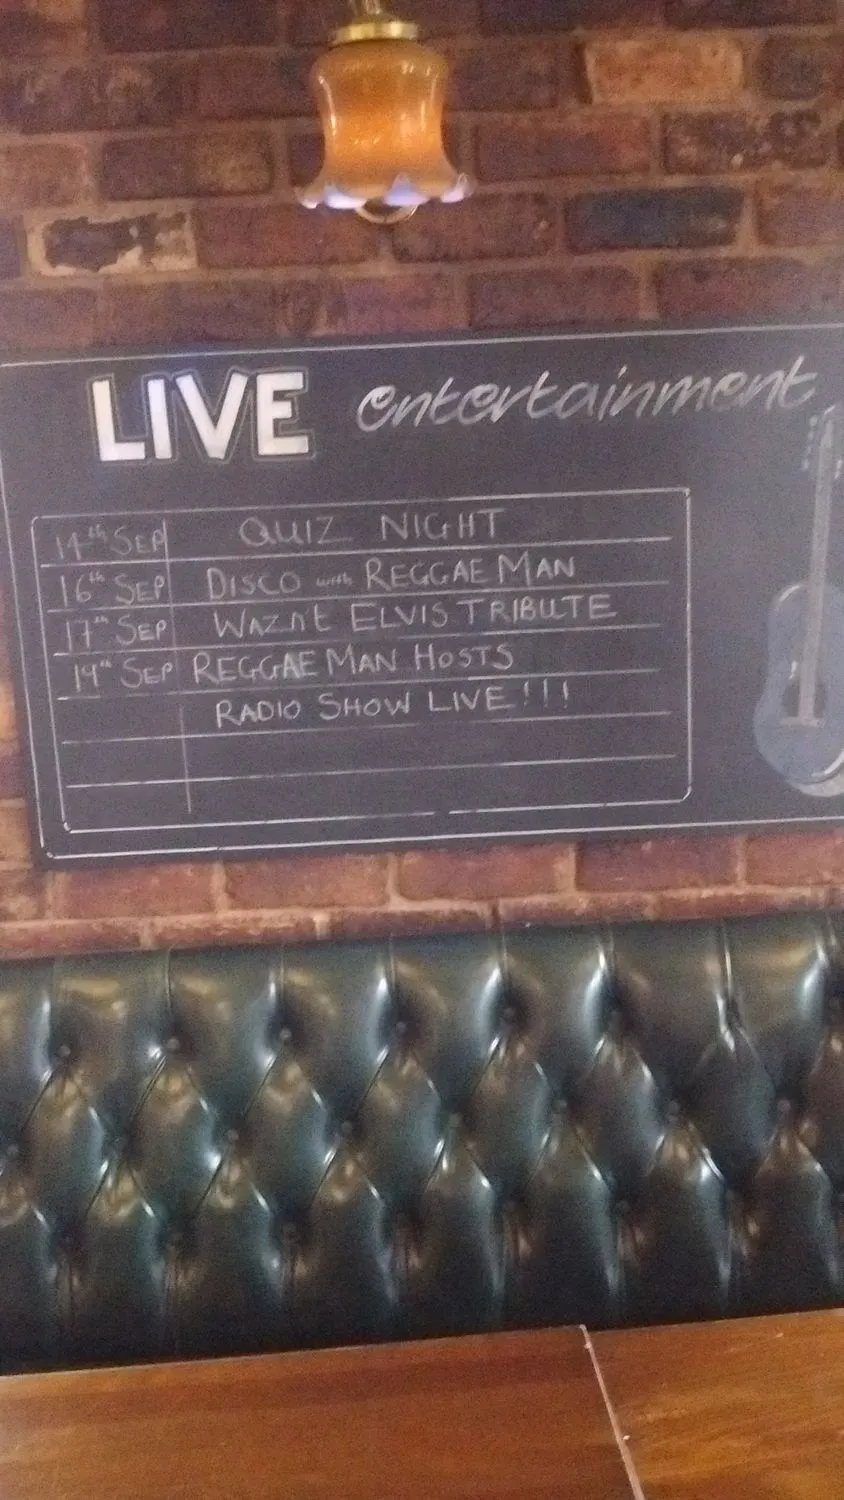 LIVE entertainment
14th SEP QUIZ NIGHT
16th SEP DISCO with REGGAE MAN
17th SEP WAZNT ELVIS TRIBUTE
19th SEP REGGAE MAN HOSTS
RADIO SHOW LIVE!!!